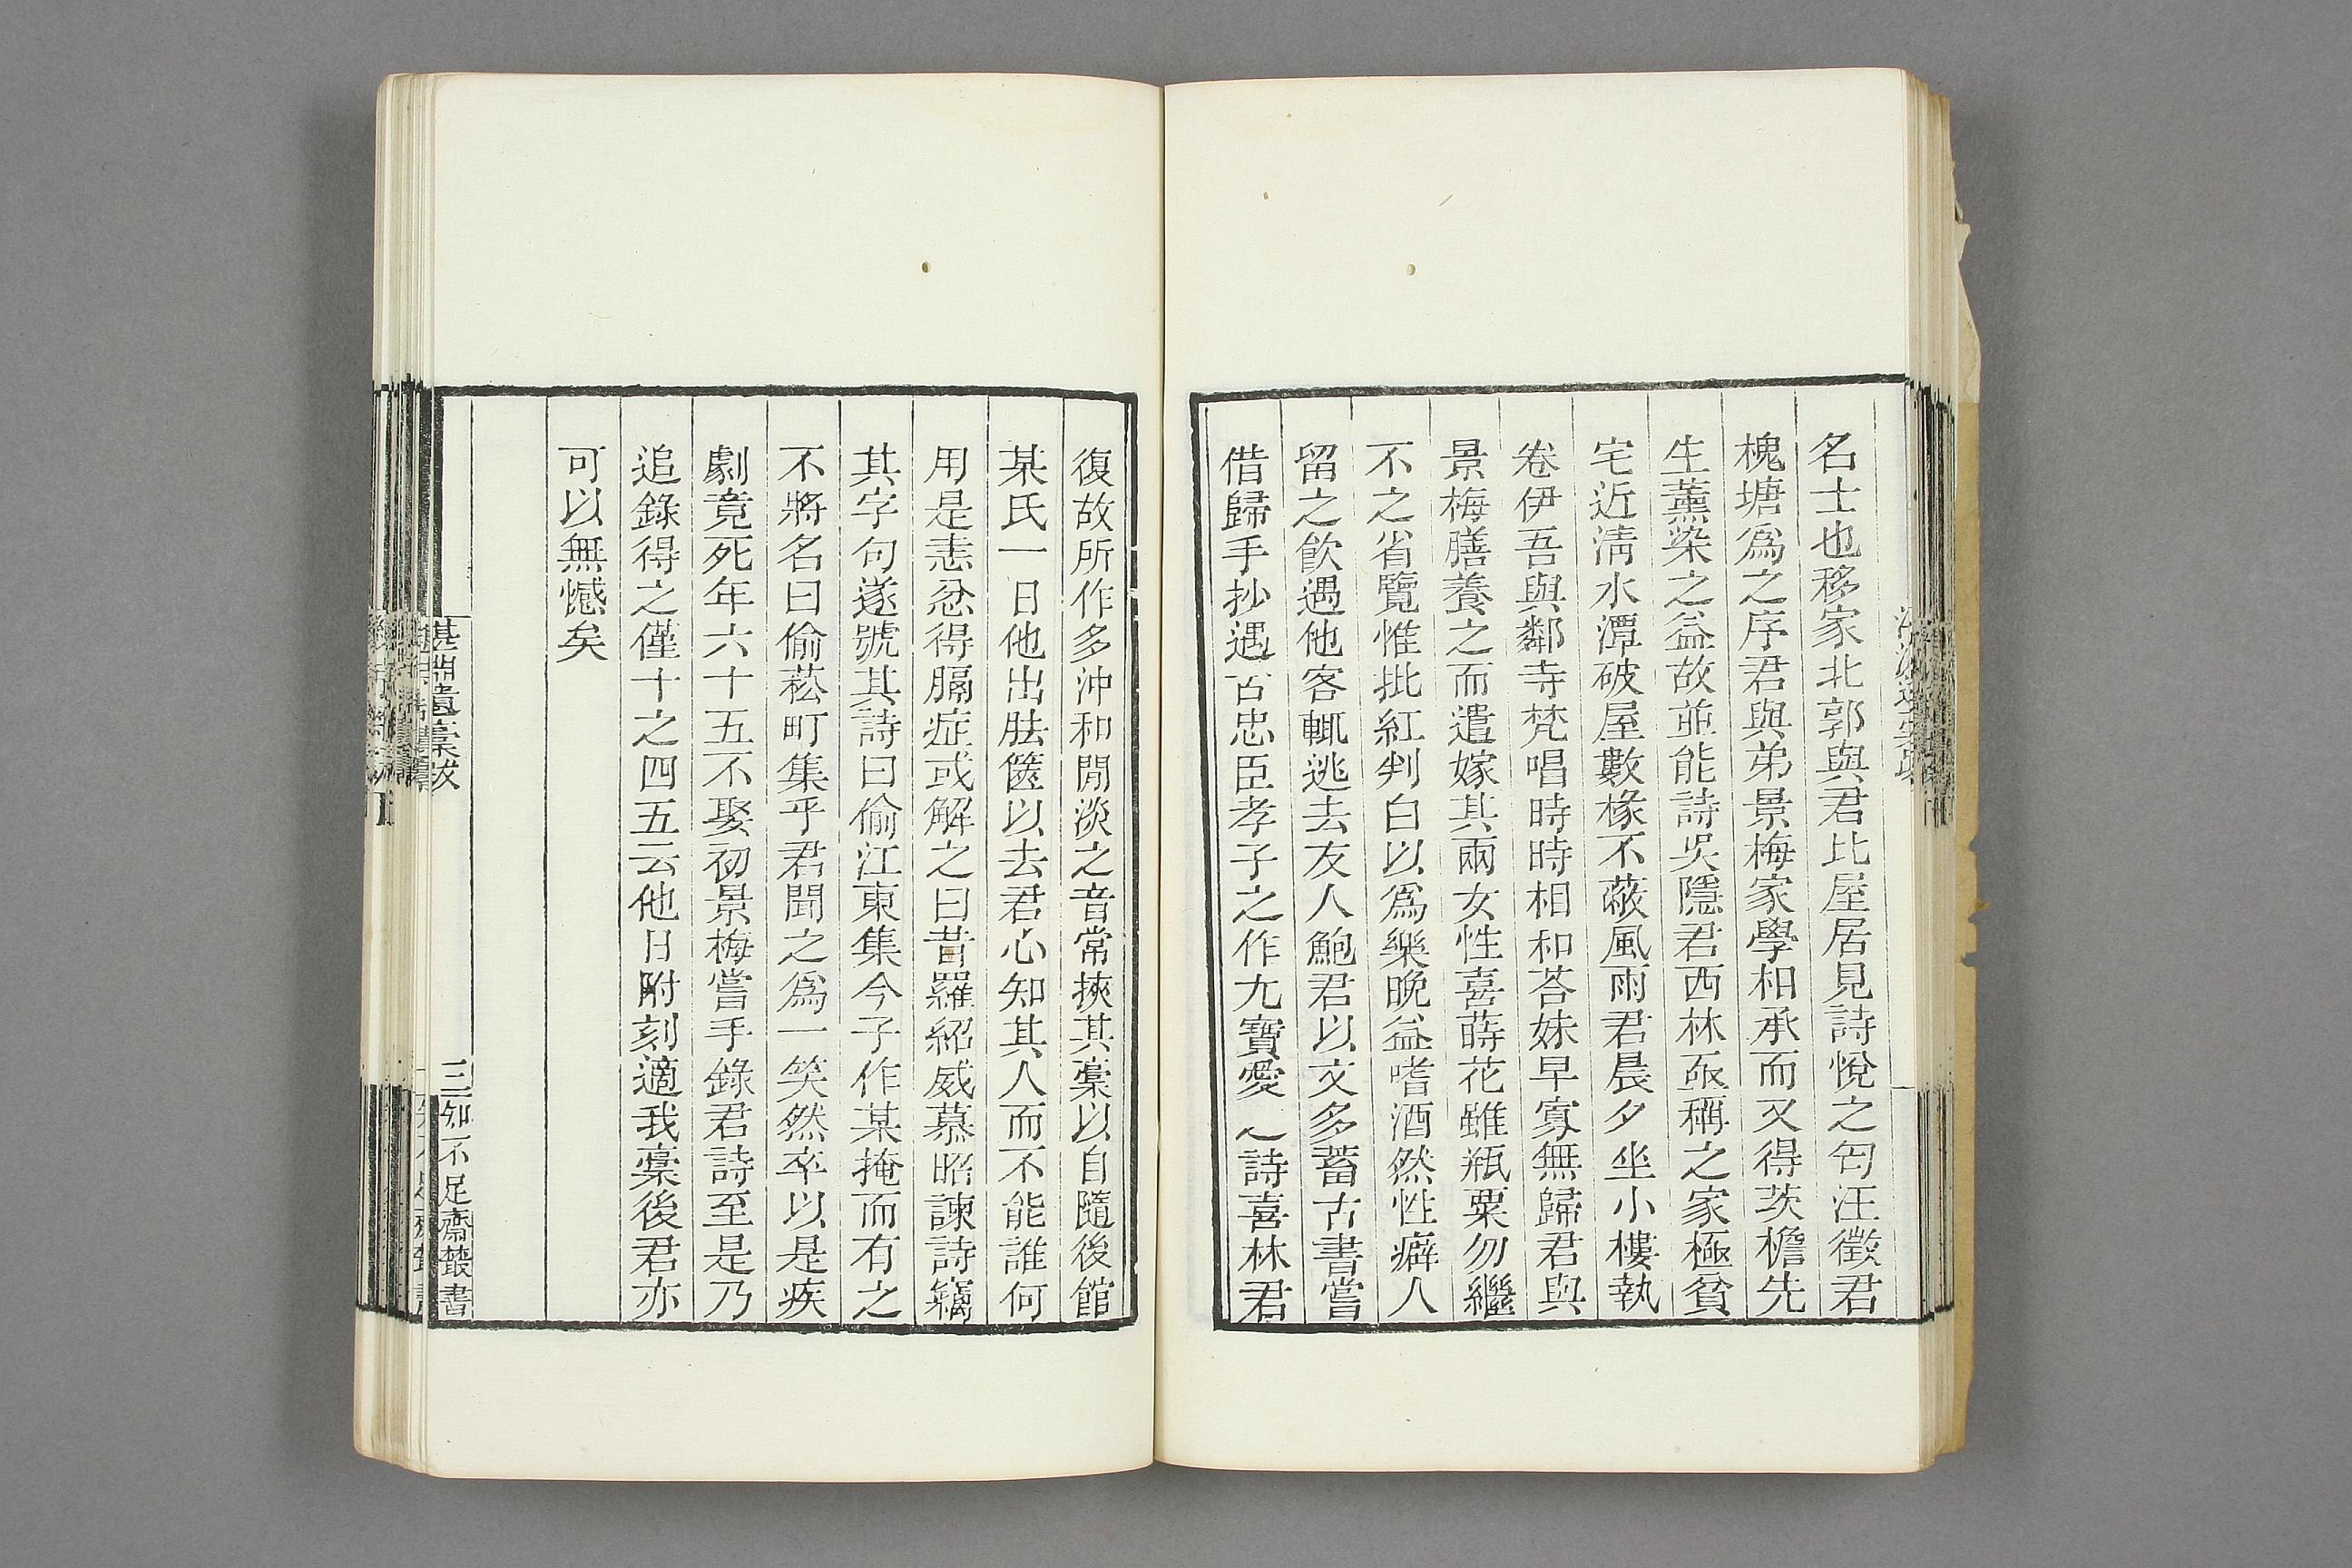 名士也移家北郭與君比屋居見詩悅之匄汪徵君
槐塘爲之序君與弟景梅家學相承而又得茨檐先
生薰染之益故並能詩吳隱君西林亟稱之家極貧
宅近淸水潭破屋數椽不蔽風雨君晨夕坐小樓執
卷伊吾與鄰寺梵唱時時相和荅妹早寡無歸君與
景梅膳養之而遣嫁其兩女性喜蒔花雖瓶粟勿繼
不之省覽惟批紅判白以爲樂晩益嗜酒然性癖人
留之飮遇他客輒逃去友人鮑君以文多蓄古書嘗
借歸手抄遇古忠臣孝子之作尤寶愛之詩喜林君
復故所作多沖和閒淡之音常挾其稾以自隨後館
某氏一日他出胠篋以去君心知其人而不能誰何
用是恚忿得膈症或解之曰昔羅紹威慕昭諫詩竊
其字句遂號其詩曰偷江東集今子作某掩而有之
不將名曰偷菘町集乎君聞之爲一笑然卒以是疾
劇竟死年六十五不娶初景梅嘗手錄君詩至是乃
追錄得之僅十之四五云他日附刻適我稾後君亦
可以無憾矣
三 知不足齋叢書